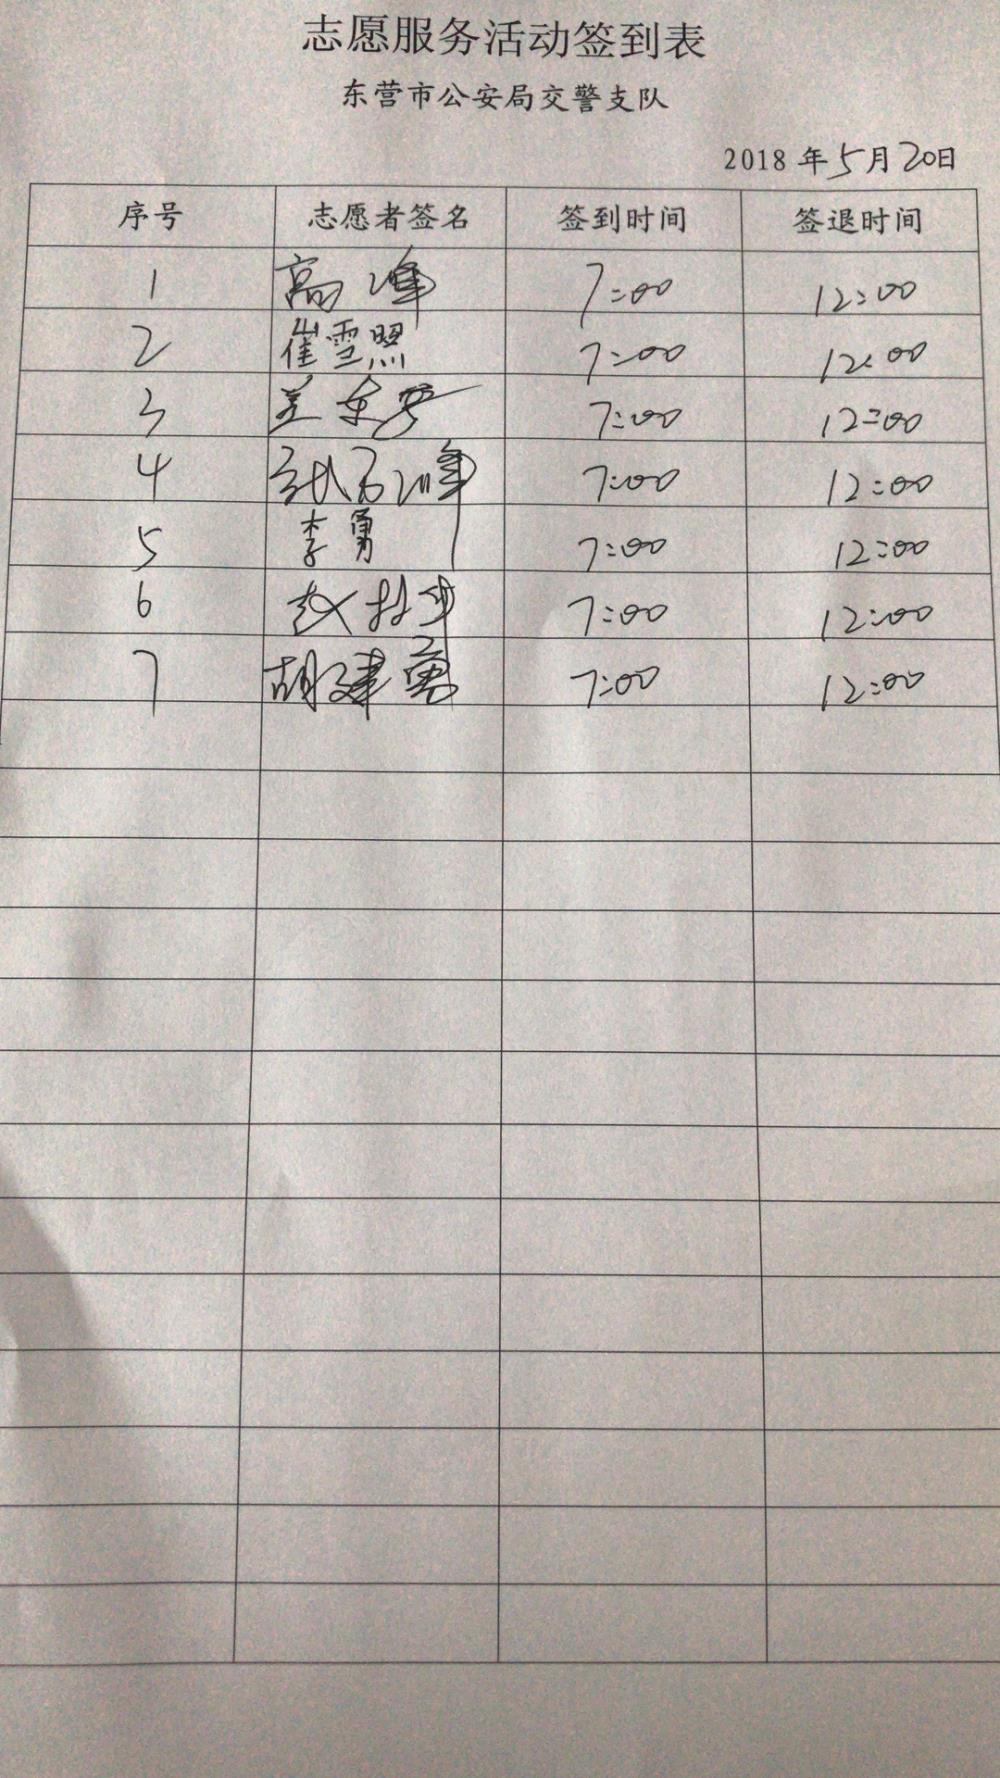 志愿服务活动签到表
东营市公安局交警支队
2018 年 5 月 20 日
序号 志愿者签名 签到时间 签退时间
1 高峰 7:00 12:00
2 崔雪照 7:00 12:00
3 7:00 12:00
4 张石峰 7:00 12:00
5 李勇 7:00 12:00
6 赵 7:00 12:00
7 胡建勇 7:00 12:00